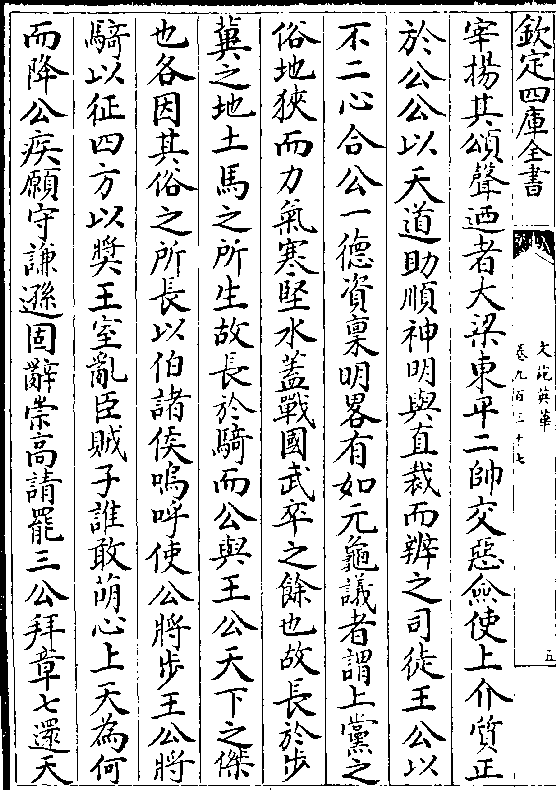 欽定四庫全書
文苑英華
卷九百三十七
五
宰揚其頌聲迺者大梁東平二帥交惡僉使上介質正
於公公以天道助順神明與直裁而辨之司徒王公以
不二心合公一德資稟明畧有如元龜議者謂上黨之
俗地狹而力氣寒堅氷蓋戰國武卒之餘也故長於步
冀之地土馬之所生故長於騎而公與王公天下之傑
也各因其俗之所長以伯諸侯嗚呼使公將步王公將
騎以征四方以奬王室亂臣賊子誰敢萌心上天為何
而降公疾願守謙遜固辭崇高請罷三公拜章七還天